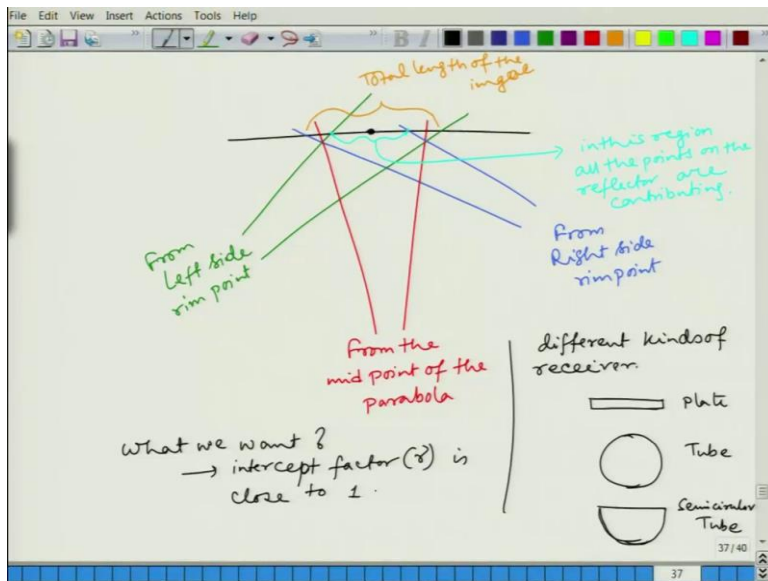 File Edit View Insert Actions Tools Help
B I
Total length of the
imgae
in this region
all the points on the
reflector are
contributing.
From
Left side
rim point
From
Right side
rim point
From the
mid point of the
parabola
different kinds of
receiver.
Plate
Tube
Semicircular
Tube
What we want ?
→ intercept factor (γ) is
close to 1.
37/40
37